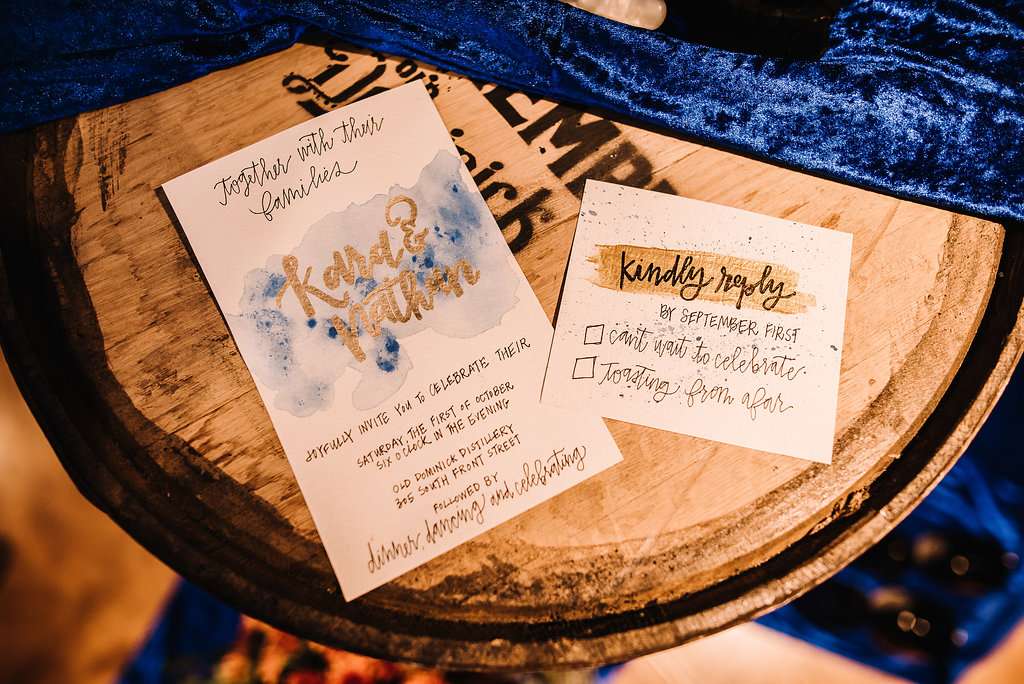 together with their
families
Kara &
Nathan
JOYFULLY INVITE YOU TO CELEBRATE THEIR
SATURDAY, THE FIRST OF OCTOBER
SIX O'CLOCK IN THE EVENING
OLD DOMINICK DISTILLERY
305 SOUTH FRONT STREET
FOLLOWED BY
dinner, dancing and celebrating
kindly reply
BY SEPTEMBER FIRST
can't wait to celebrate
Toasting from afar